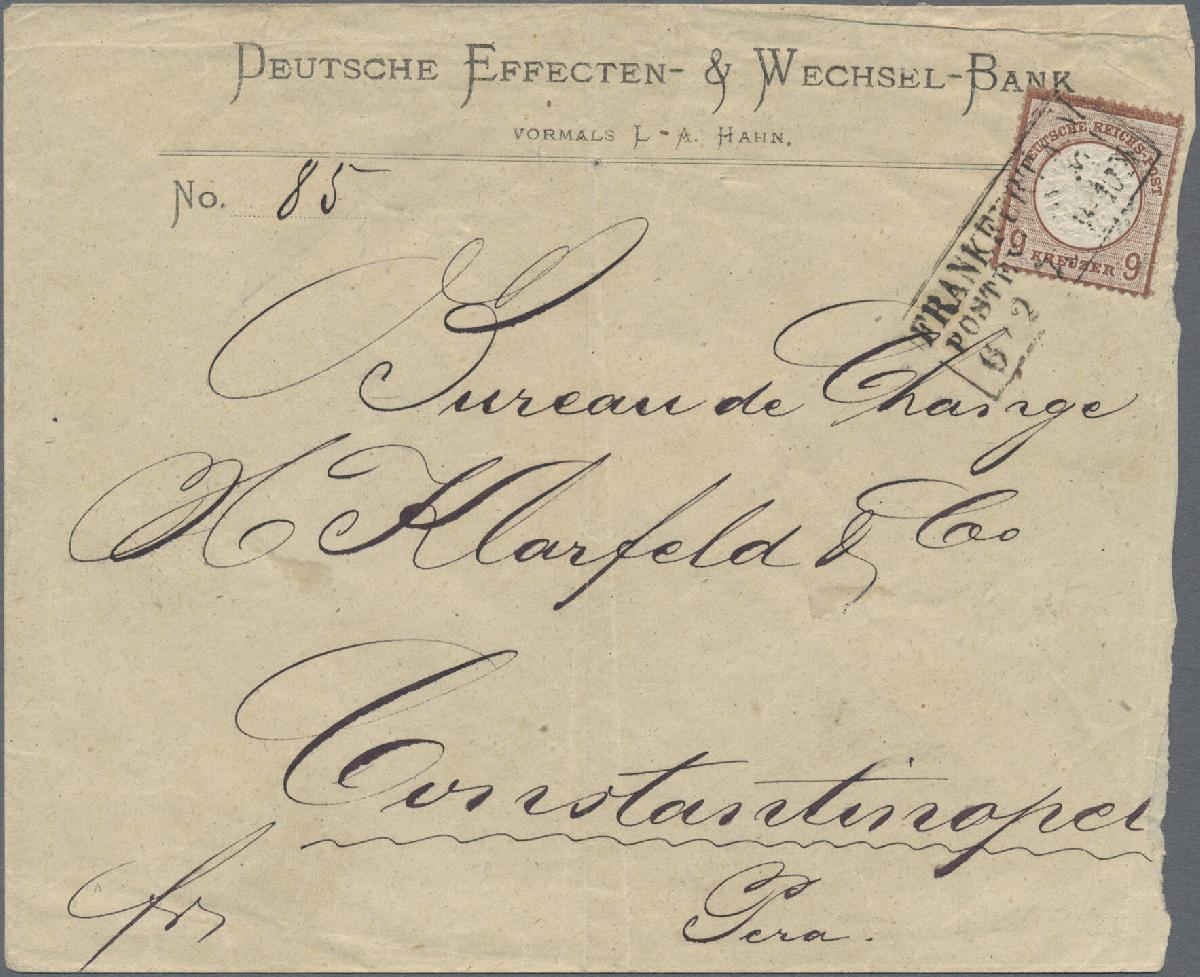 DEUTSCHE EFFECTEN- & WECHSEL-BANK
VORMALS L-A. HAHN.
No. 85
DEUTSCHE REICHS-POST
9 KREUZER 9
FRANKFURT
Bureau de Change
H Klarfeld & Co
Constantinopel
Pera.